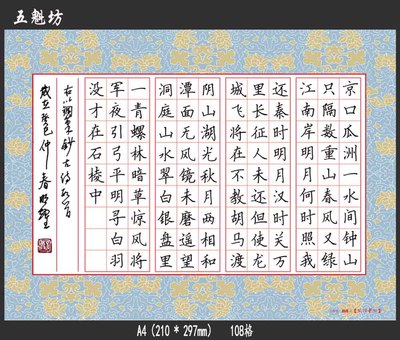 五魁坊
京口瓜洲一水间钟山
只隔数重山春风又绿
江南岸明月何时照我
还秦时明月汉时关万
里长征人未还但使龙
城飞将在不教胡马渡
阴山湖光秋月两相和
潭面无风镜未磨遥望
洞庭山水翠白银盘里
一青螺林暗草惊风将
军夜引弓平明寻白羽
没才在石棱中
仲春
A4 (210 * 297mm) 108格